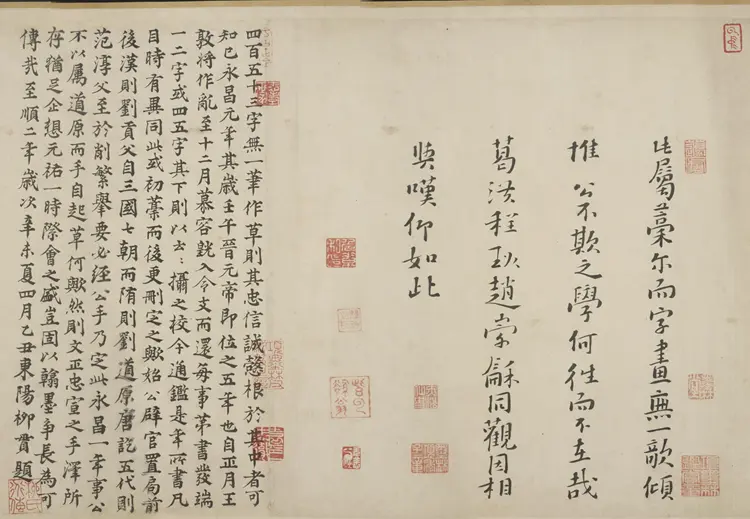 此屬藁尔而字畫無一欹傾
惟 公不欺之學何往而不在哉
葛洪程珌趙崇龢同觀因相
與嘆仰如此
四百五十三字無一筆作草則其忠信誠慤根於其中者可
知已永昌元年其歲壬午晉元帝即位之五年也自正月王
敦將作亂至十二月慕容皝入令支而還每事第書發端
一二字或四五字其下則以云〻攝之校今通鑑是年所書凡
目時有異同此或初藁而後更刪定之歟始公辟官置局前
後漢則劉貢父自三國七朝而隋則劉道原唐訖五代則
范淳父至於削繁舉要必經公手乃定此永昌一年事公
不以屬道原而手自起草何歟然則文正忠宣之手澤所
存猶足企想元祐一時際會之盛豈固以翰墨爭長為可
傳哉至順二年歲次辛未夏四月乙丑東陽柳貫題